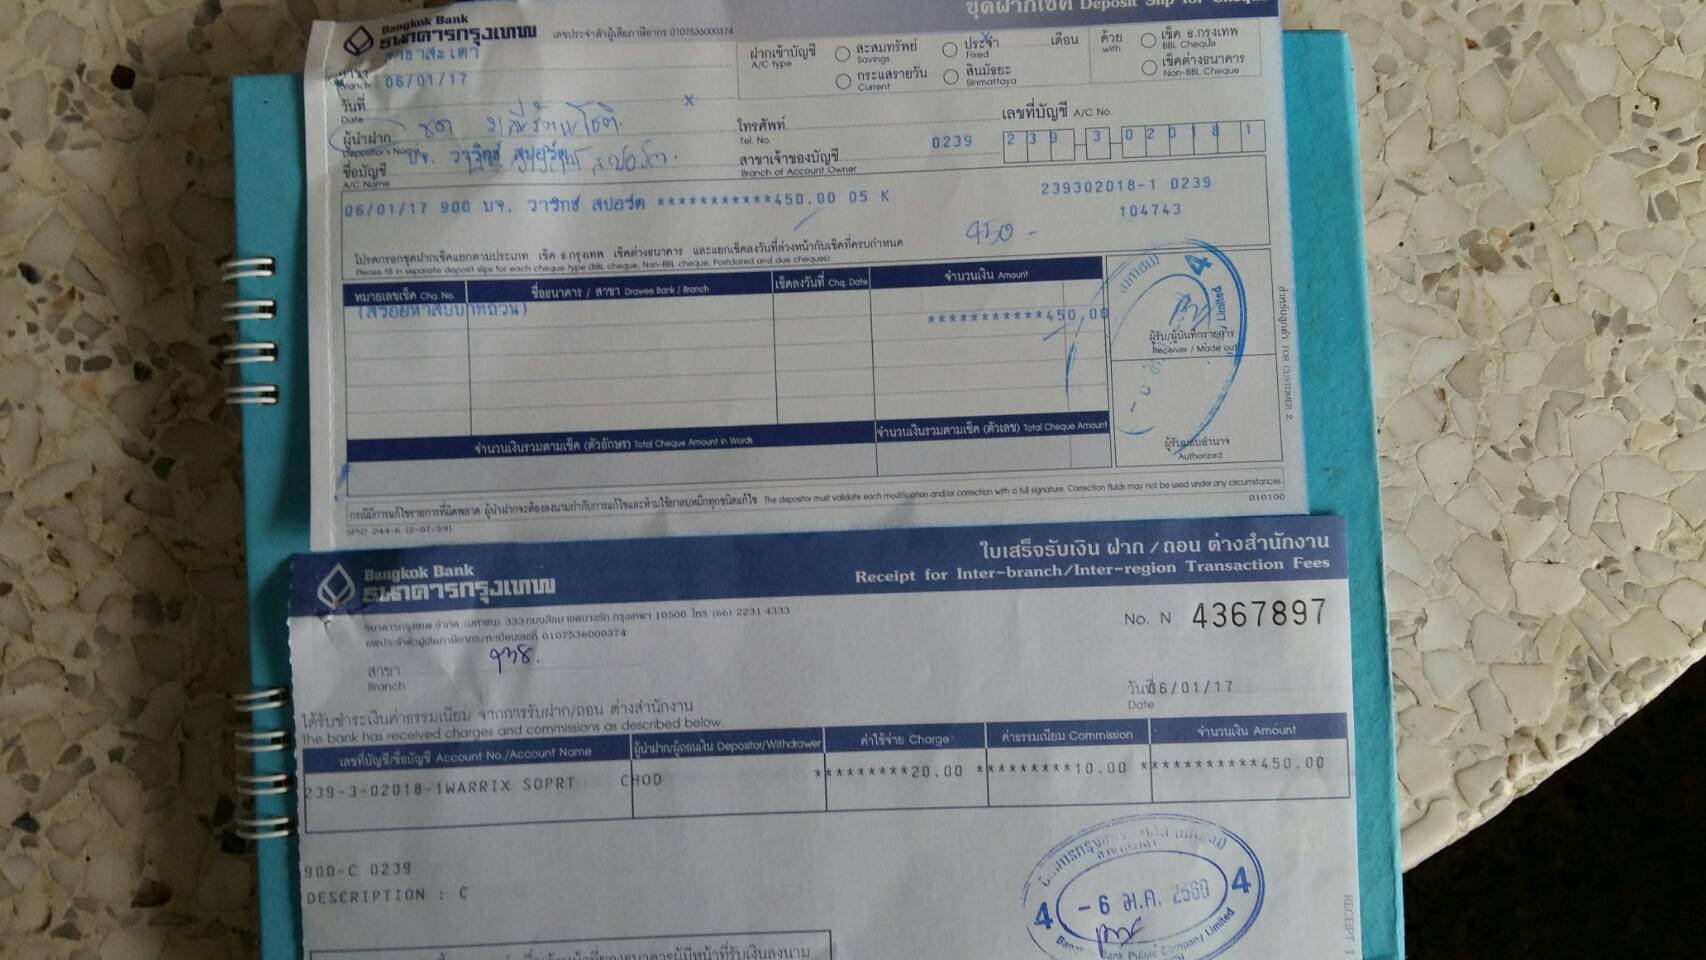 Bangkok Bank
ธนาคารกรุงเทพ
เลขประจำตัวผู้เสียภาษีอากร 0107536000374
ชุดฝากเช็ค Deposit Slip for Cheque
สาขาสะเดา
สาขา
Branch
06/01/17
ฝากเข้าบัญชี
A/C type
สะสมทรัพย์
Savings
ประจำ
Fixed
เดือน
กระแสรายวัน
Current
สินมัธยะ
Sinmattaya
ด้วย
with
เช็ค ธ.กรุงเทพ
BBL Cheque
เช็คต่างธนาคาร
Non-BBL Cheque
วันที่
Date
x
ผู้นำฝาก
Depositor's Name
โทรศัพท์
Tel. No.
เลขที่บัญชี A/C No.
ชื่อบัญชี
A/C Name
สาขาเจ้าของบัญชี
Branch of Account Owner
0239
239-3-02018 1
06/01/17 900 บจ. วาริกซ์ สปอร์ต ***********450.00 05 K
239302018-1 0239
104743
450 -
โปรดกรอกชุดฝากเช็คแยกตามประเภท เช็ค ธ.กรุงเทพ เช็คต่างธนาคาร และแยกเช็คลงวันที่ล่วงหน้ากับเช็คที่ครบกำหนด
Please fill in separate deposit slips for each cheque type (BBL cheque, Non-BBL cheque, Postdated and due cheques)
หมายเลขเช็ค Chq. No.
ชื่อธนาคาร / สาขา Drawee Bank / Branch
เช็คลงวันที่ Chq. Date
จำนวนเงิน Amount
(สี่ร้อยห้าสิบบาทถ้วน)
***********450.00
ผู้รับ/ผู้บันทึกรายการ
Receiver / Made out
ผู้รับมอบอำนาจ
Authorized
สำหรับลูกค้า FOR CUSTOMER 2
จำนวนเงินรวมตามเช็ค (ตัวอักษร) Total Cheque Amount in Words
จำนวนเงินรวมตามเช็ค (ตัวเลข) Total Cheque Amount
กรณีมีการแก้ไขรายการที่ผิดพลาด ผู้นำฝากจะต้องลงนามกำกับการแก้ไขและห้ามใช้ยาลบหมึกทุกชนิดแก้ไข The depositor must validate each modification and/or correction with a full signature. Correction fluids may not be used under any circumstances.
010100
244-6 (2-07/59)
Bangkok Bank
ธนาคารกรุงเทพ
ใบเสร็จรับเงิน ฝาก / ถอน ต่างสำนักงาน
Receipt for Inter-branch/Inter-region Transaction Fees
ธนาคารกรุงเทพ จำกัด (มหาชน) 333 ถนนสีลม เขตบางรัก กรุงเทพฯ 10500 โทร. (66) 2231 4333
เลขประจำตัวผู้เสียภาษีอากร/ทะเบียนเลขที่ 0107536000374
No. N 4367897
สาขา
Branch
วันที่ 06/01/17
Date
ได้รับชำระเงินค่าธรรมเนียม จากการรับฝาก/ถอน ต่างสำนักงาน
The bank has received charges and commissions as described below.
เลขที่บัญชี/ชื่อบัญชี Account No./Account Name
ผู้นำฝาก/ผู้ถอนเงิน Depositor/Withdrawer
ค่าใช้จ่าย Charge
ค่าธรรมเนียม Commission
จำนวนเงิน Amount
239-3-02018-1WARRIX SOPRT CHOD *********20.00 *********10.00 ***********450.00
900-C 0239
DESCRIPTION : C
4 - 6 ม.ค. 2560 4
Bank Public Company Limited
RECEIPT 1